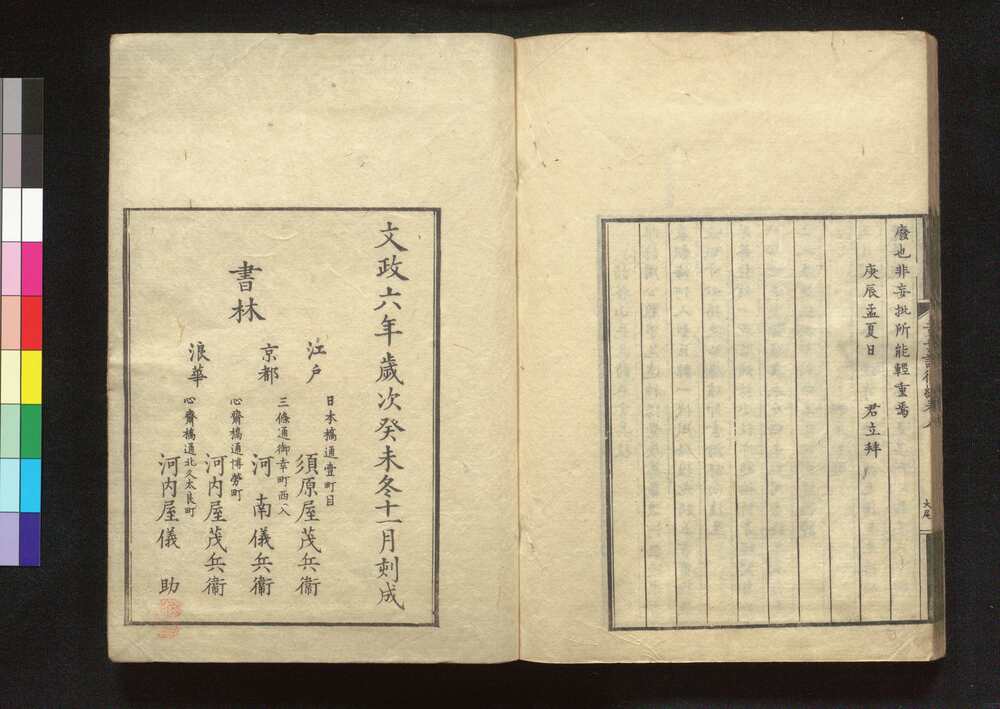 廢也非妄批所能輕重焉
庚辰孟夏日 君立拜
大尾
文政六年歲次癸未冬十一月刻成
書林
江戶
日本橋通壹町目
須原屋茂兵衞
京都
三條通御幸町西入
河南儀兵衞
浪華
心齋橋通博勞町
河内屋茂兵衞
心齋橋通北久太良町
河内屋儀助